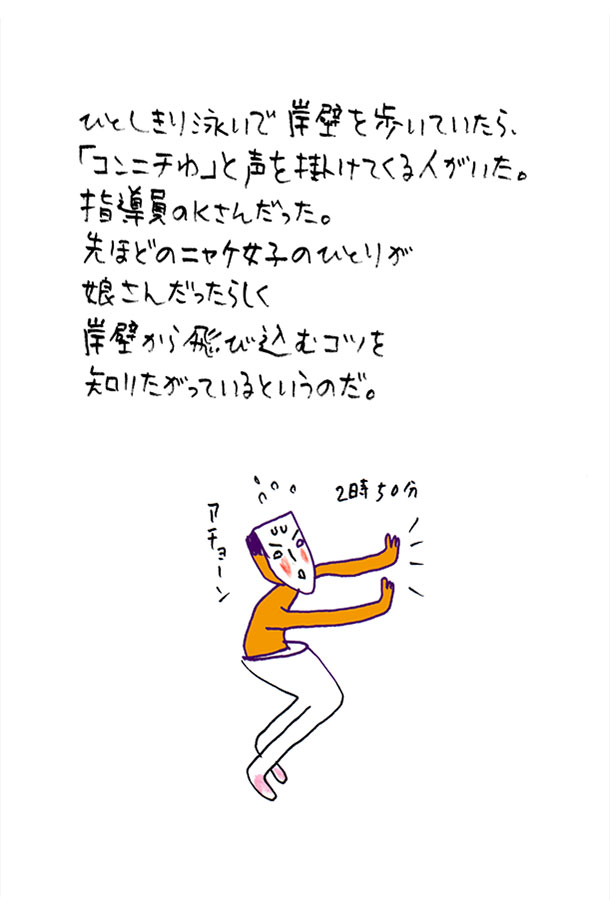 ひとしきり泳いで岸壁を歩いていたら、
「コンニチわ」と声を掛けてくる人がいた。
指導員のKさんだった。
先ほどのニャケ女子のひとりが
娘さんだったらしく
岸壁から飛び込むコツを
知りたがっているというのだ。
2時50分
アチョーン